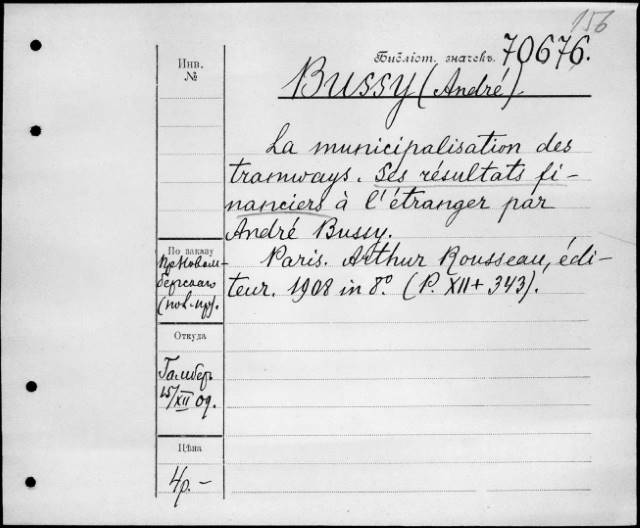 156
Библіот. значекъ. 70676.
Инв.
№
Bussy (André)
La municipalisation des
tramways. Ses résultats fi-
nanciers à l'étranger par
André Bussy.
Paris. Arthur Rousseau, édi-
teur. 1908 in 8º. (P. XII + 343).
По заказу
пр. Новом-
бергскаго
(нов. пр).
Откуда
Гамберъ
15/XII 09.
Цѣна
4р.-